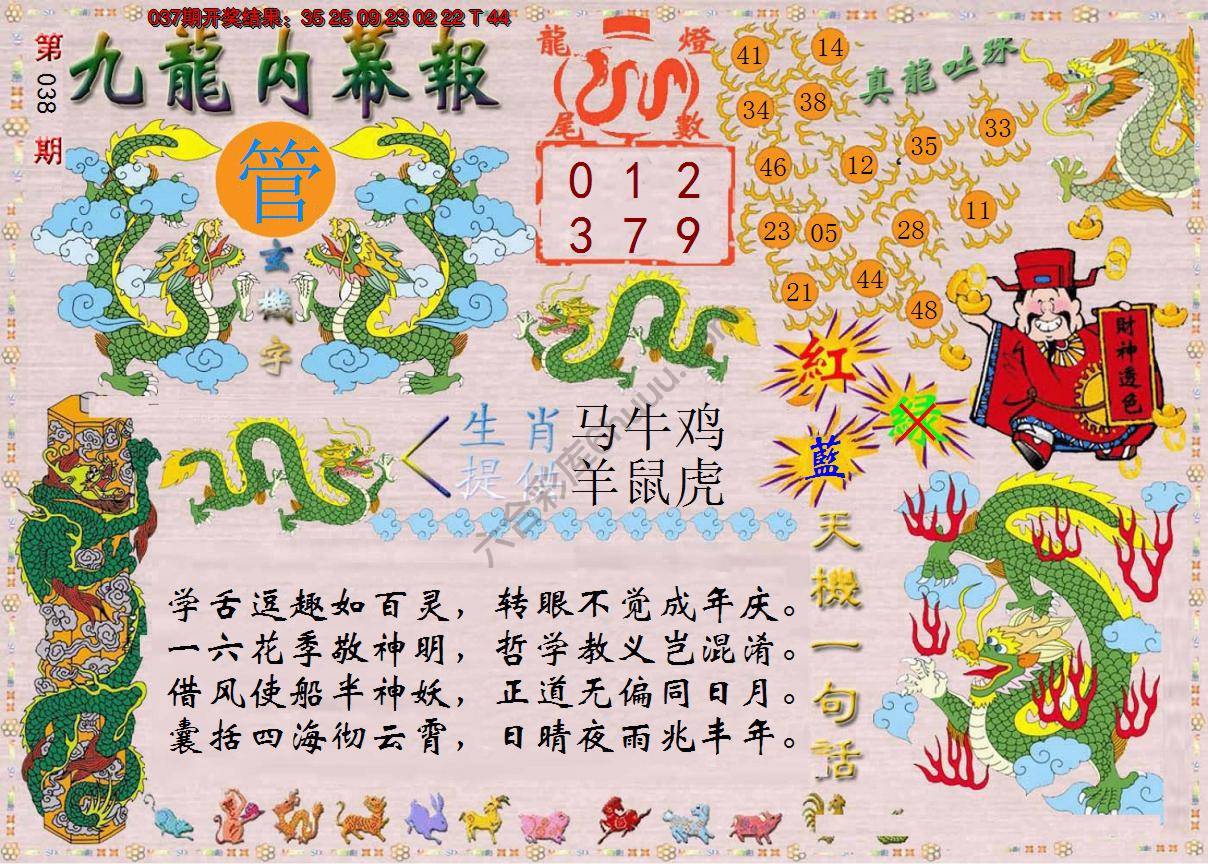 037期开奖结果：35 25 09 23 02 22 T 44
第038期
九龍内幕報
管
玄機字
龍燈
尾數
0 1 2
3 7 9
真龍吐珠
41 14
34 38
46 12 35 33
23 05 28 11
21 44 48
紅
綠
藍
財神透色
生肖 马牛鸡
提供 羊鼠虎
天機一句話
学舌逗趣如百灵，转眼不觉成年庆。
一六花季敬神明，哲学教义岂混淆。
借风使船半神妖，正道无偏同日月。
囊括四海彻云霄，日晴夜雨兆丰年。